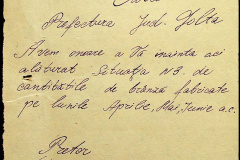 Către
Prefectura Jud. Jolta
Avem onoare a Vă înainta aci
alăturat Situația N3. de
cantitățile de brânză fabricate
pe lunile Aprilie, Mai, Iunie a.c.
Pretor